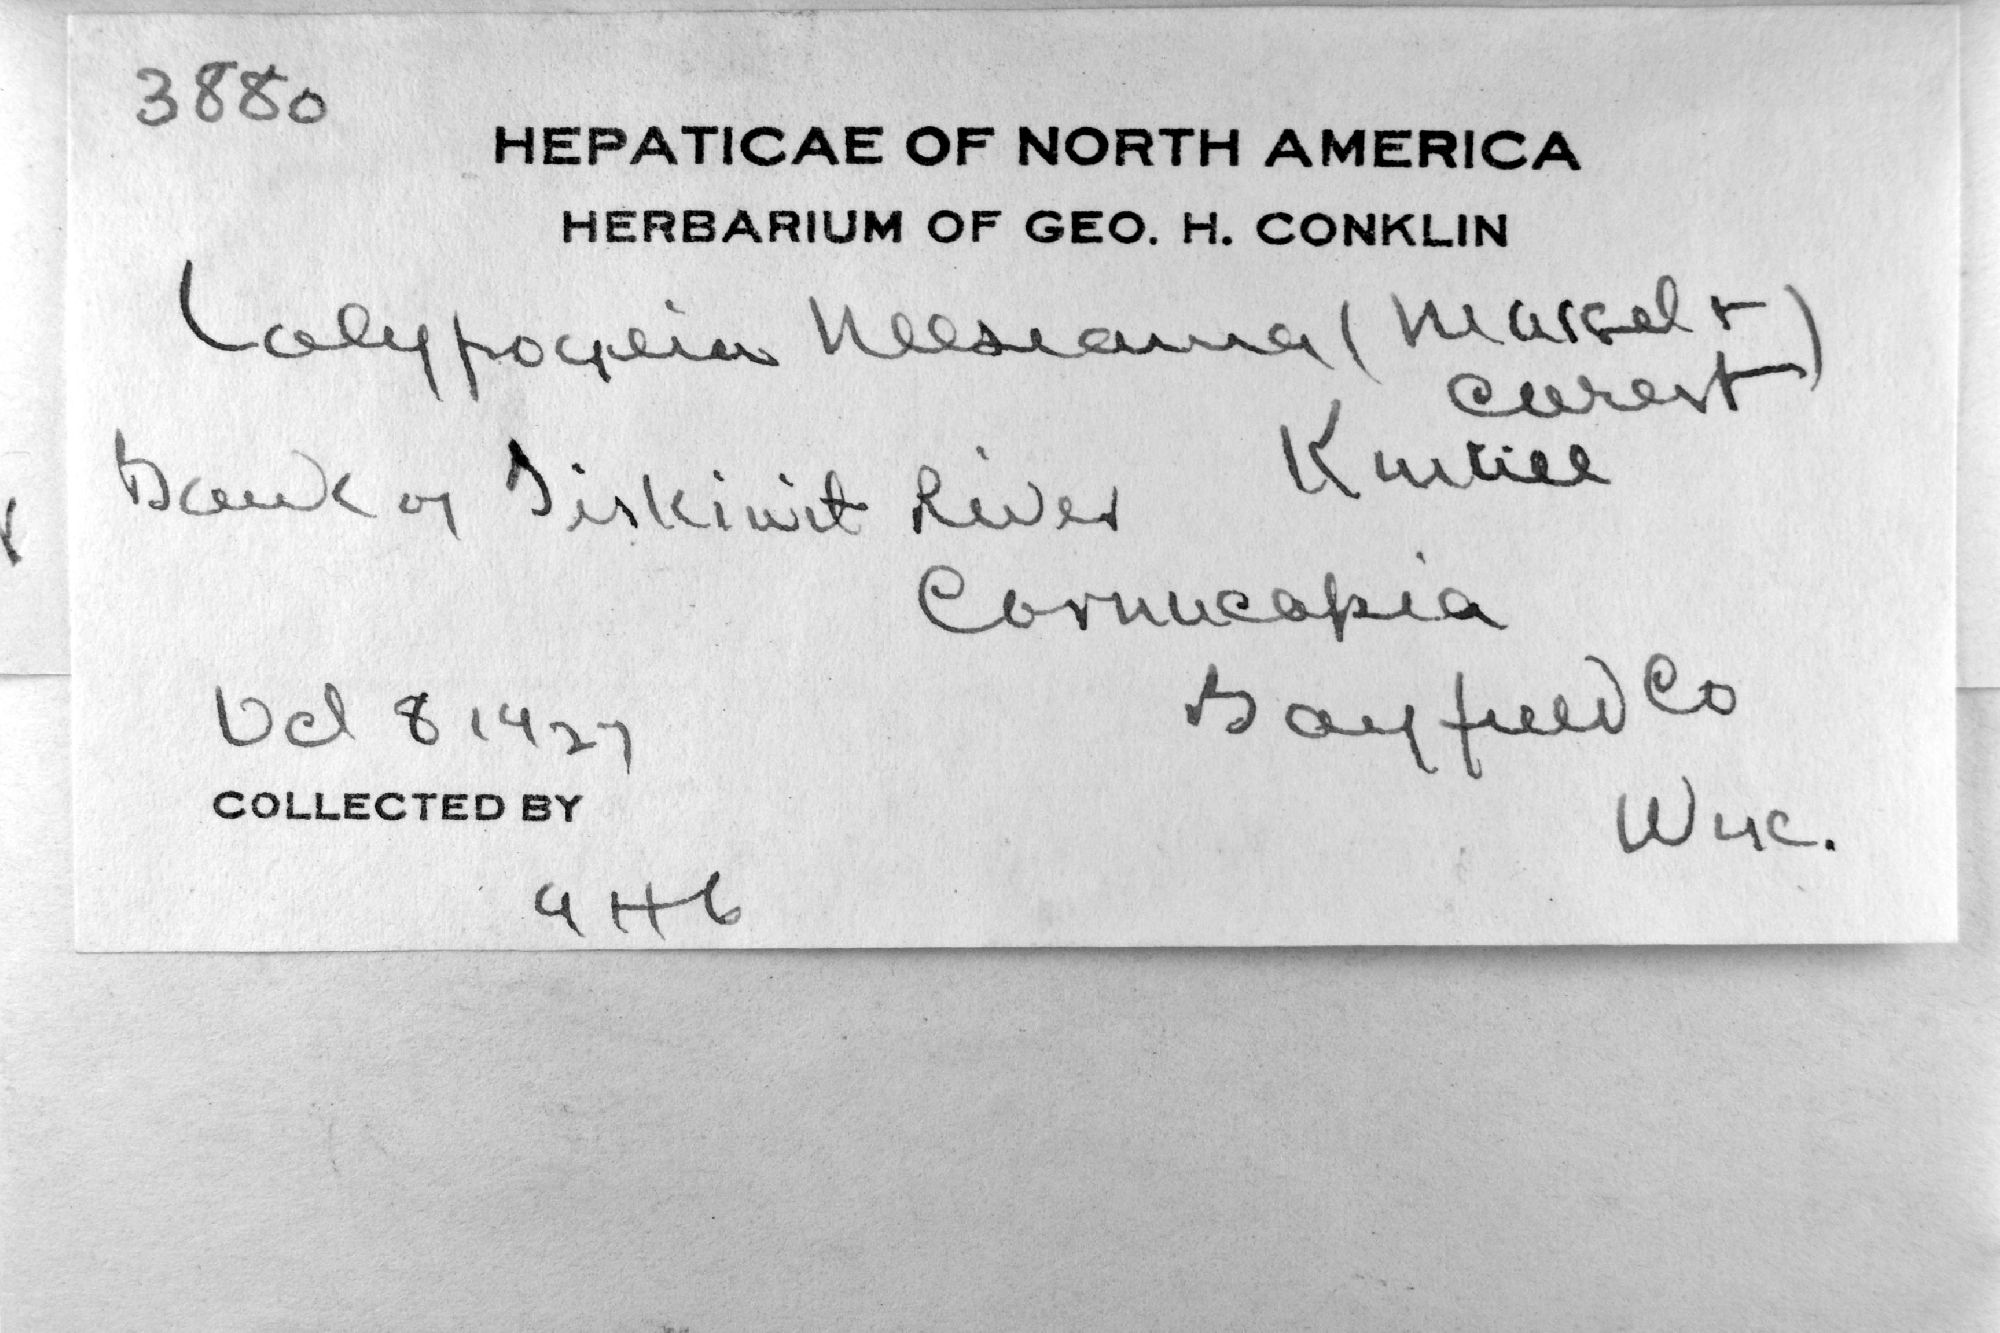 3880
HEPATICAE OF NORTH AMERICA
HERBARIUM OF GEO. H. CONKLIN
Calypogeia Neesiana (Massal &
Carest)
Bank of Siskiwit River
Cornucopia
Bayfield Co
Oct 8 1927
Wisc.
COLLECTED BY